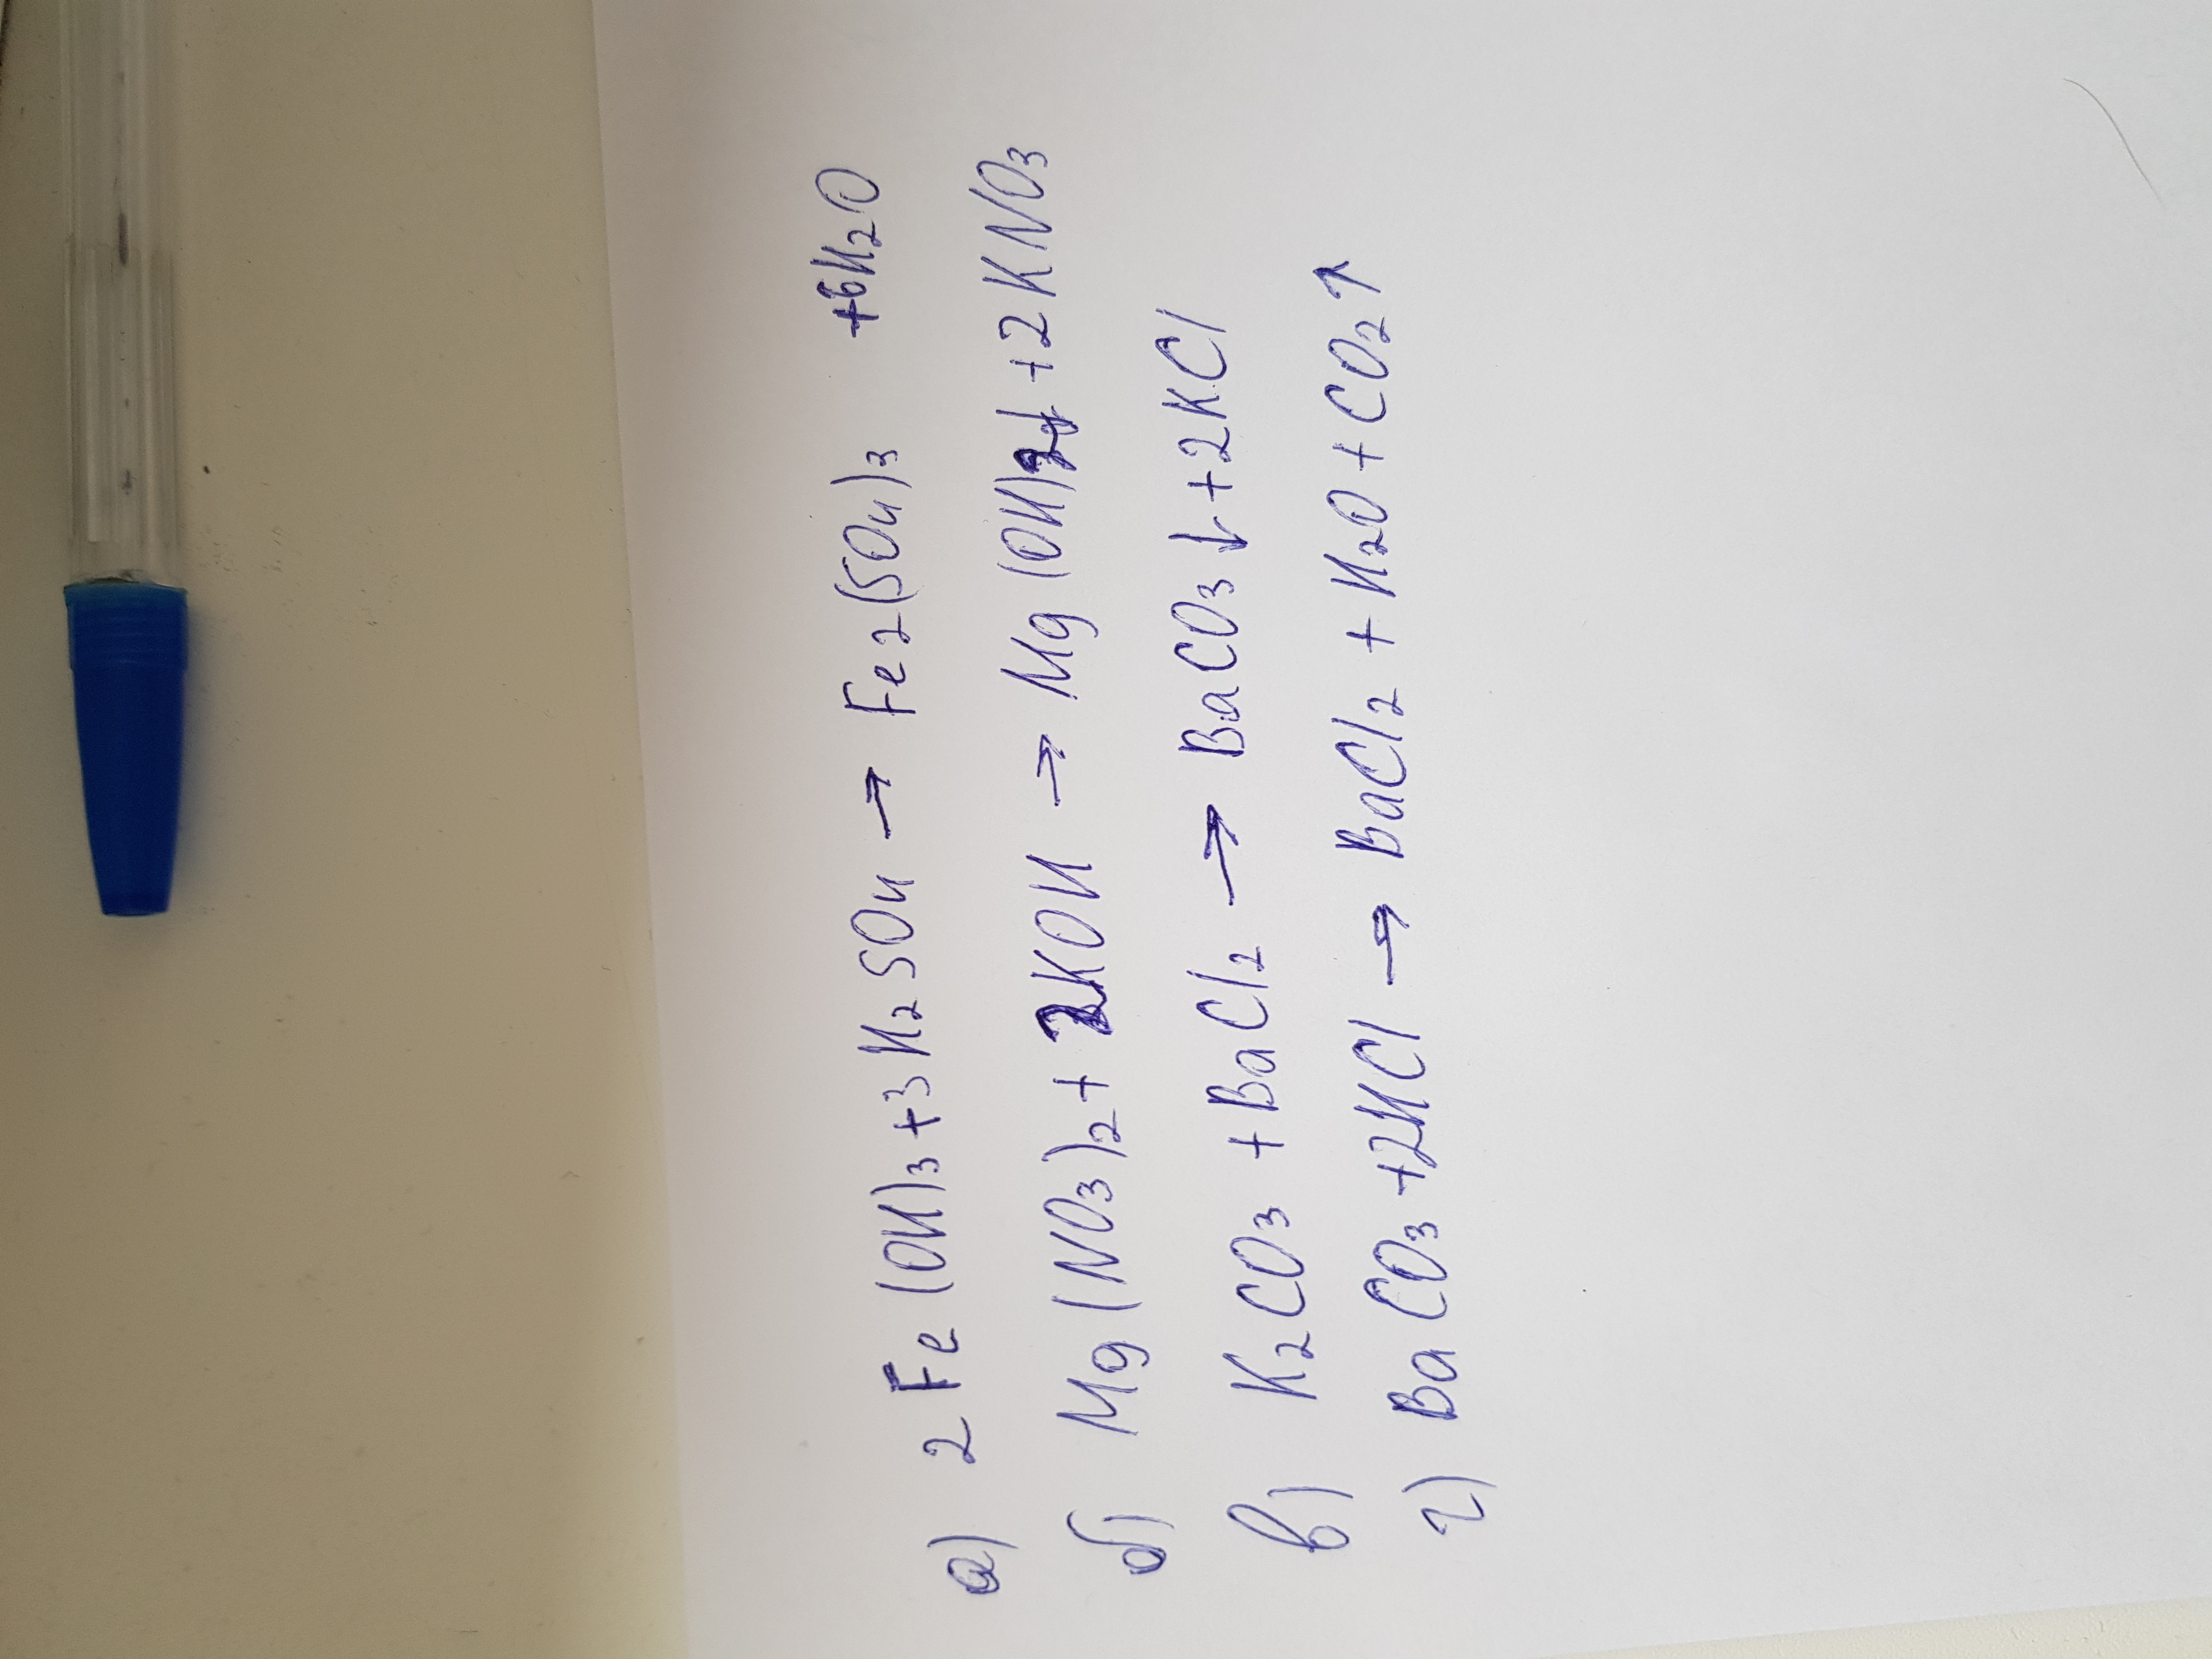 а) 2 Fe(OH)₃ + 3H₂SO₄ → Fe₂(SO₄)₃ + 6H₂O
б) Mg(NO₃)₂ + 2KOH → Mg(OH)₂↓ + 2KNO₃
в) K₂CO₃ + BaCl₂ → BaCO₃↓ + 2KCl
г) BaCO₃ + 2HCl → BaCl₂ + H₂O + CO₂↑